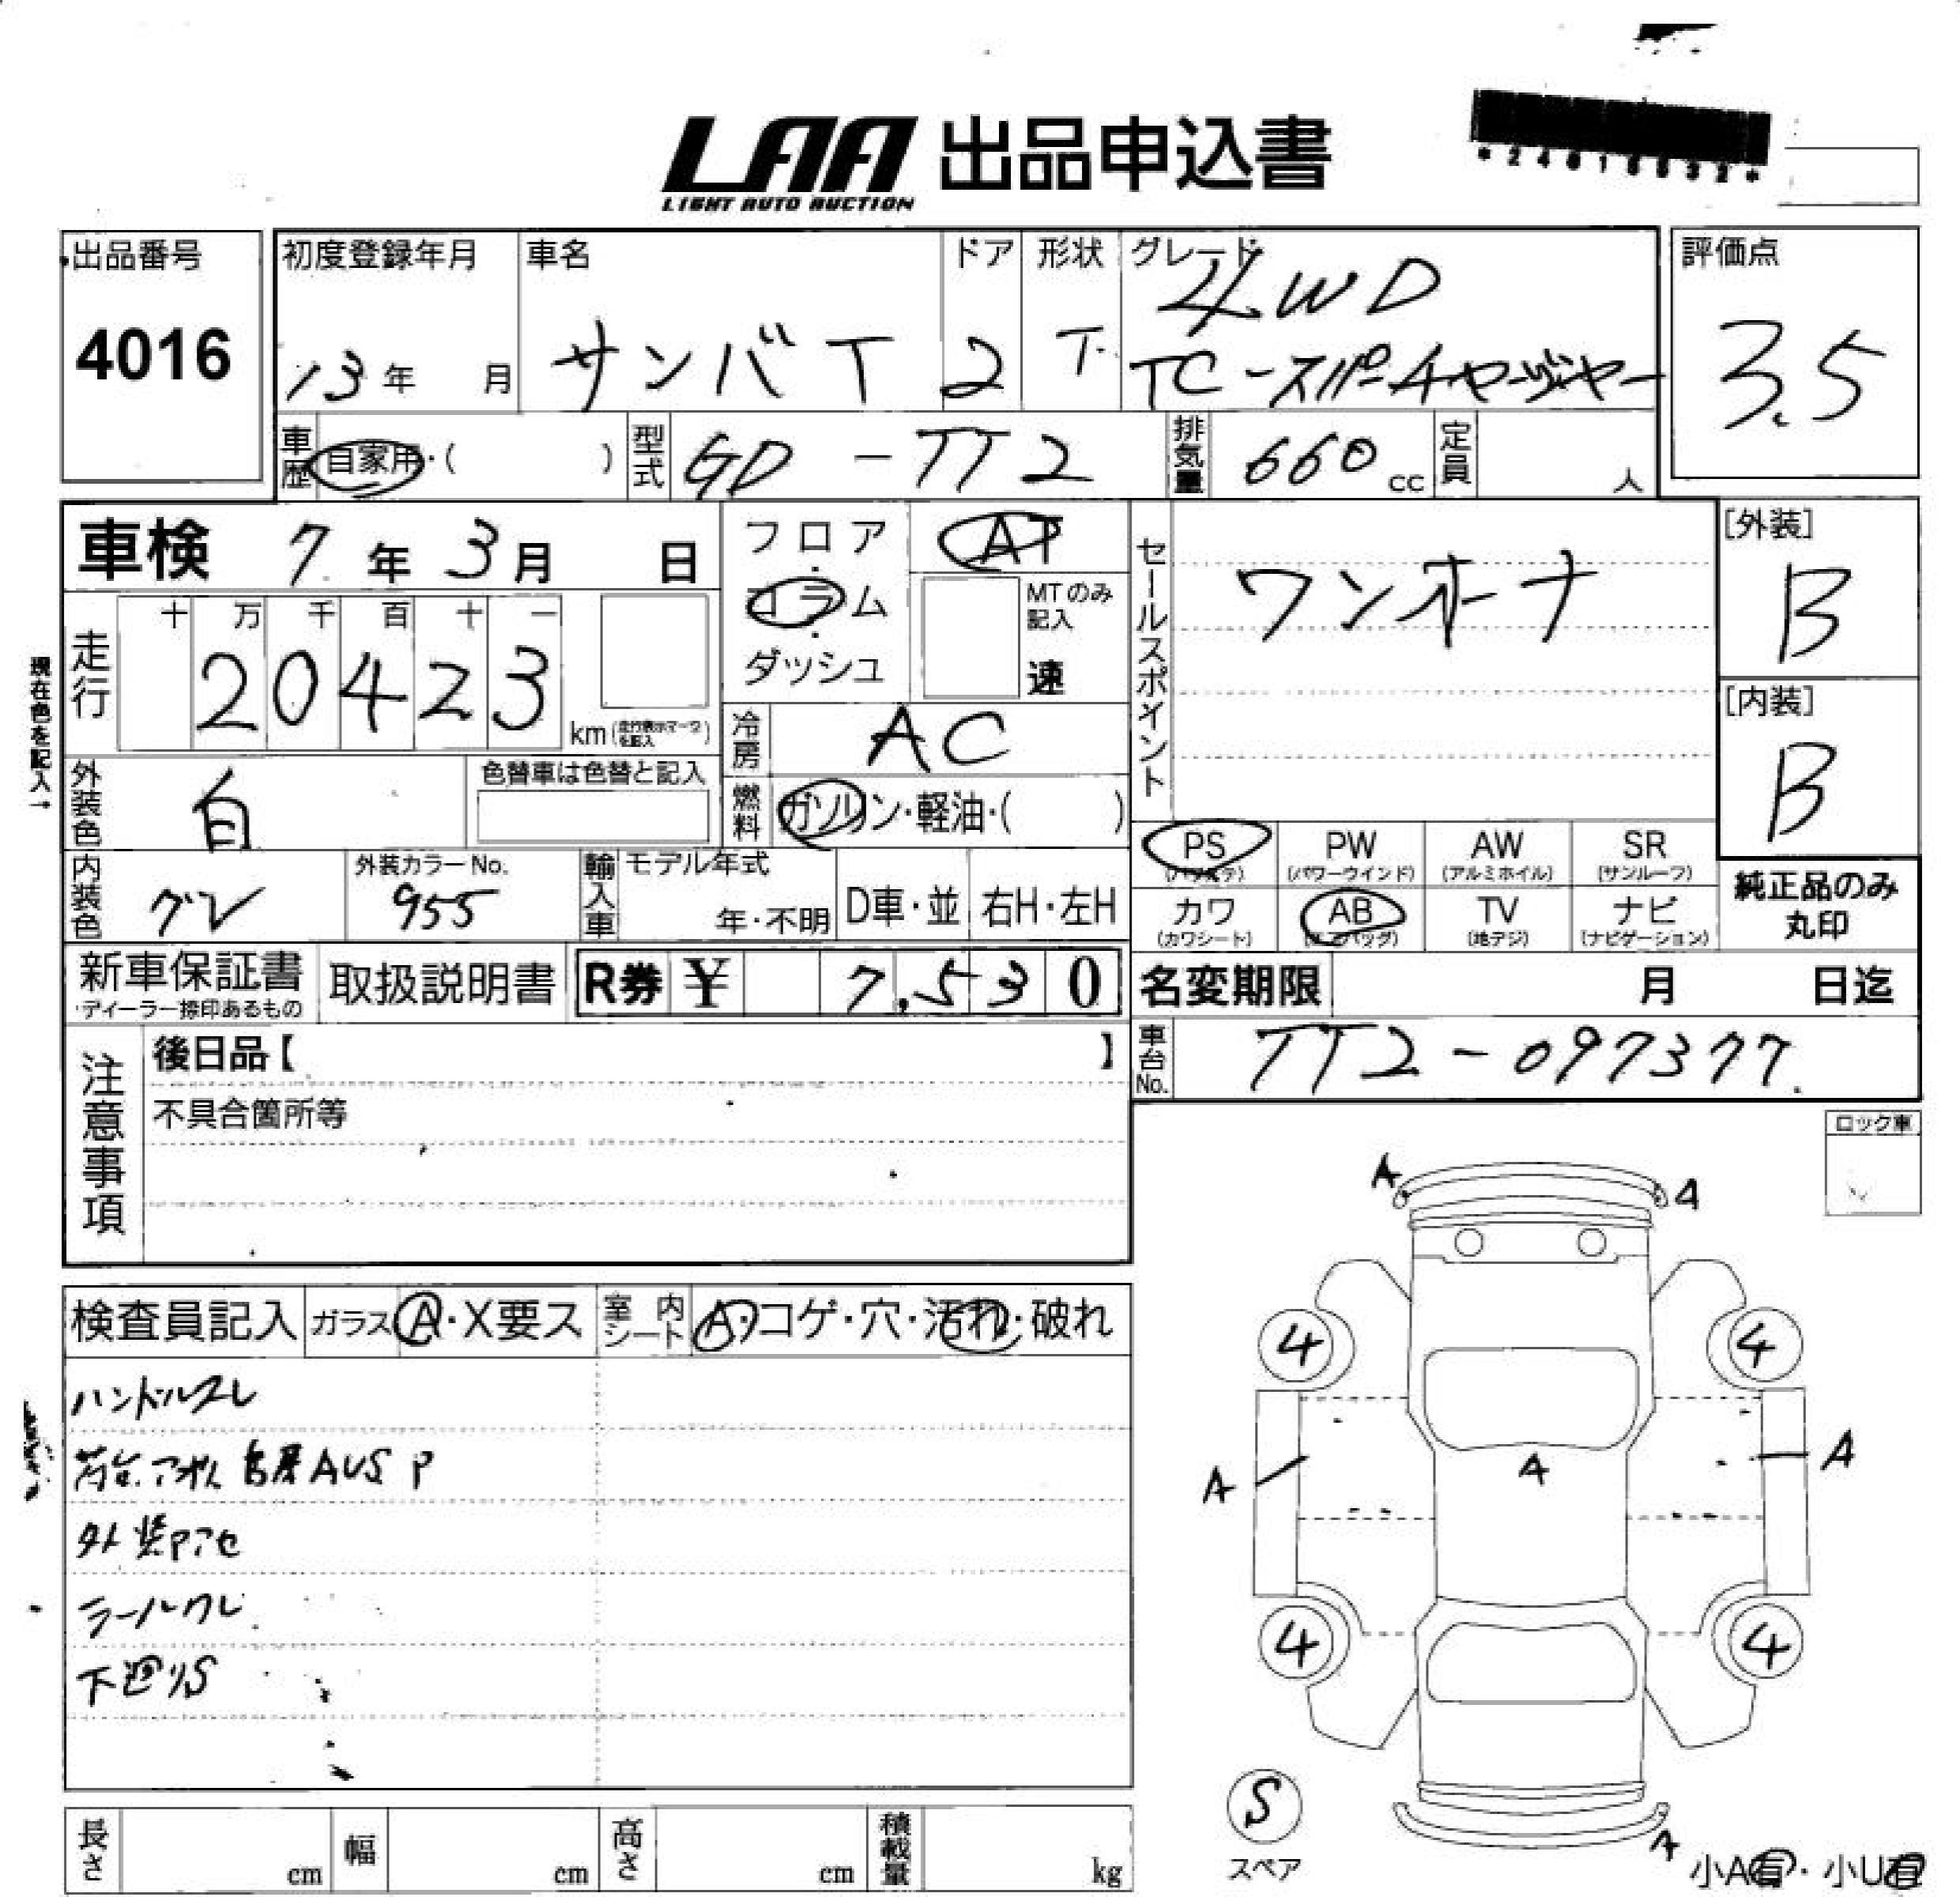 LAA 出品申込書
LIGHT AUTO AUCTION
出品番号
4016
初度登録年月
13年 月
車名
サンバT
ドア
2
形状
T
グレード
4WD
TC-スーパーチャージャー
評価点
3.5
車歴 自家用・( )
型式 GD-TT2
排気量 660 cc
定員 人
車検 7年3月 日
フロア・コラム・ダッシュ
AT
MTのみ記入
速
セールスポイント
ワンオーナ
[外装]
B
[内装]
B
現在色を記入→
走行
十 万 千 百 十 一
20423
km(走行表示マークを記入)
冷房 AC
外装色 白
色替車は色替と記入
燃料 ガソリン・軽油・( )
内装色 グレ
外装カラーNo.
955
輸入車
モデル年式
年・不明
D車・並
右H・左H
PS (パワステ)
PW (パワーウインド)
AW (アルミホイル)
SR (サンルーフ)
カワ (カワシート)
AB (エアバッグ)
TV (地デジ)
ナビ (ナビゲーション)
純正品のみ
丸印
新車保証書
・ディーラー捺印あるもの
取扱説明書
R券 ¥ 7,530
名変期限 月 日迄
車台No. TT2-097377
注意事項
後日品【 】
不具合箇所等
ロック車
検査員記入
ガラス A・X要ス
室内シート A・コゲ・穴・汚れ・破れ
ハンドルスレ
荷台、アオリ AUS P
外装Pアセ
下廻りS
A A
4 4
A A A
4 4
S
スペア
A
小A有・小U有
長さ cm
幅 cm
高さ cm
積載量 kg